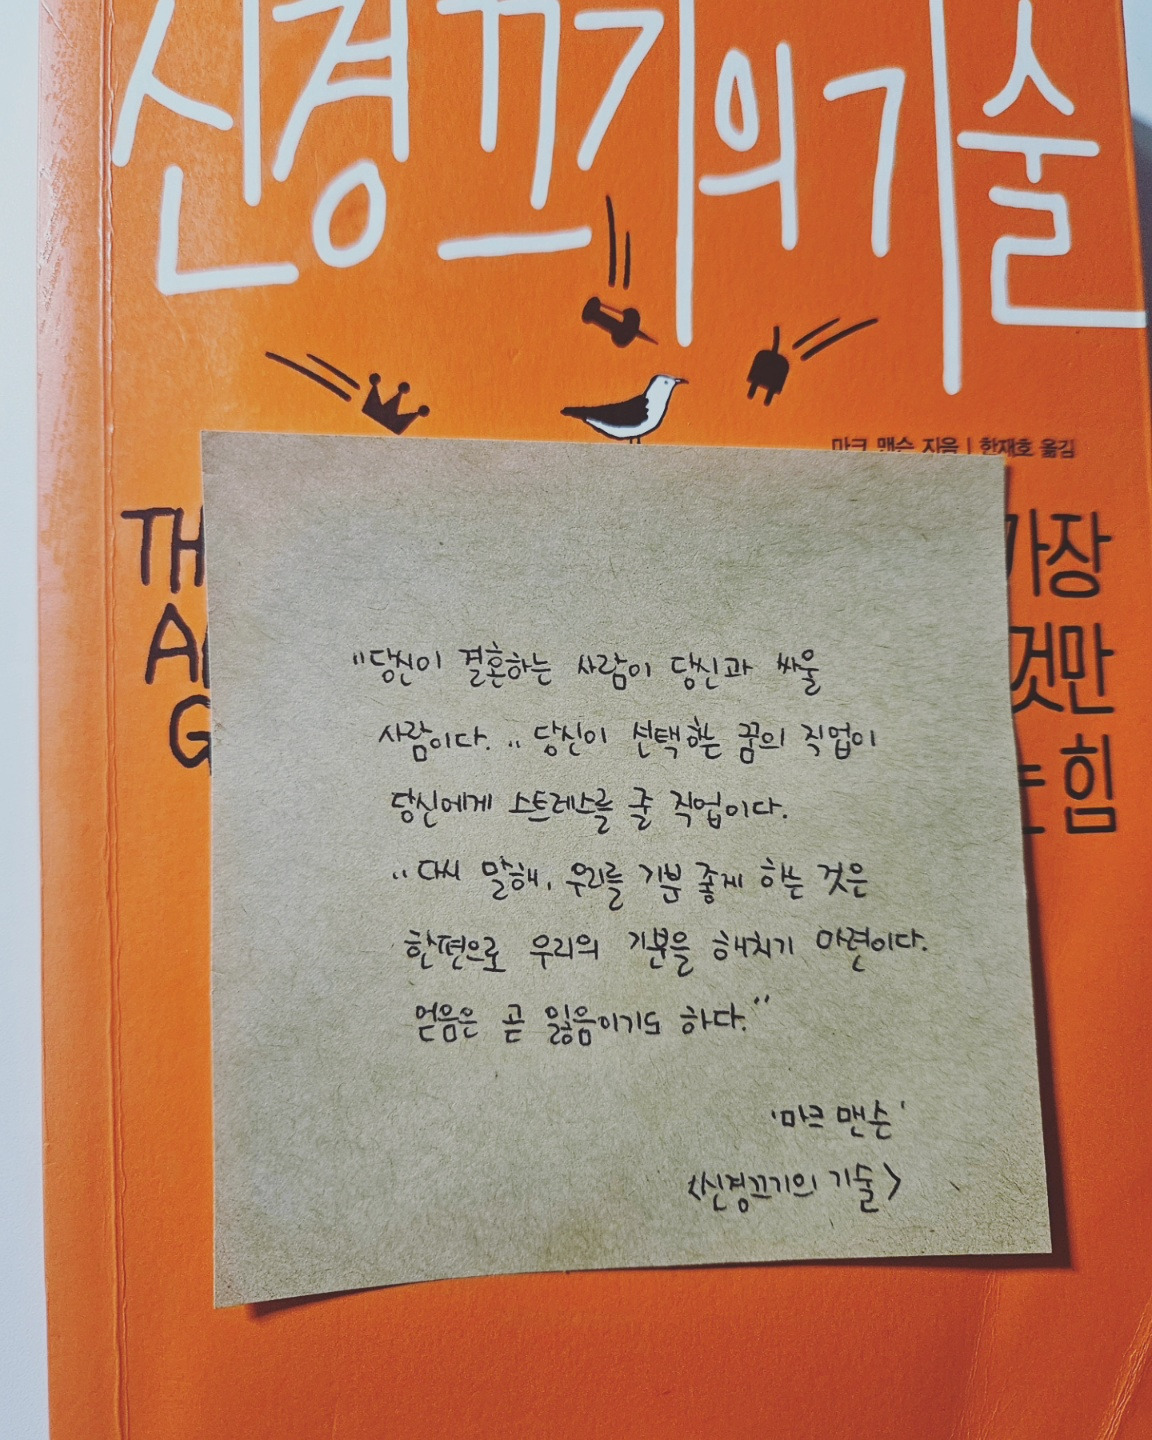 신경끄기의 기술
마크 맨슨 지음 | 한재호 옮김
TH
A
G
가장
것만
는 힘
"당신이 결혼하는 사람이 당신과 싸울
사람이다. .. 당신이 선택하는 꿈의 직업이
당신에게 스트레스를 줄 직업이다.
.. 다시 말해, 우리를 기분 좋게 하는 것은
한편으로 우리의 기분을 해치기 마련이다.
얻음은 곧 잃음이기도 하다."
'마크 맨슨'
<신경끄기의 기술>